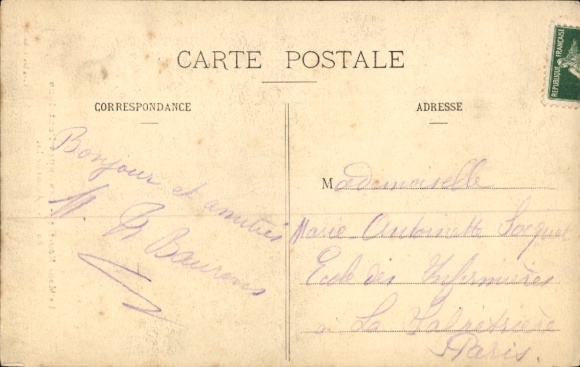 CARTE POSTALE
CORRESPONDANCE
Bonjour et amitiés
M. Th Baurens
ADRESSE
Mademoiselle
Marie Antoinette
Ecole des Infirmières
à La Salpétrière
Paris.
REPUBLIQUE FRANÇAISE